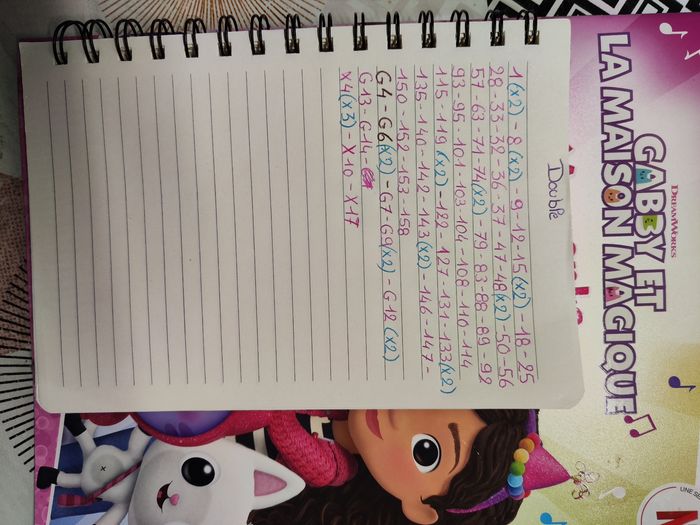 Double
1(x2) - 8(x2) - 9 - 12 - 15(x2) - 18 - 25
28 - 33 - 32 - 36 - 37 - 47 - 48(x2) - 50 - 56
57 - 63 - 71 - 74(x2) - 79 - 83 - 88 - 89 - 92
93 - 95 - 101 - 103 - 104 - 108 - 110 - 114
115 - 119(x2) - 122 - 127 - 131 - 133(x2)
135 - 140 - 142 - 143(x2) - 146 - 147 -
150 - 152 - 153 - 158
G4 - G6(x2) - G7 - G9(x2) - G12(x2)
G13 - G14 -
X4(x3) - X10 - X17
DREAMWORKS
GABBY ET
LA MAISON MAGIQUE